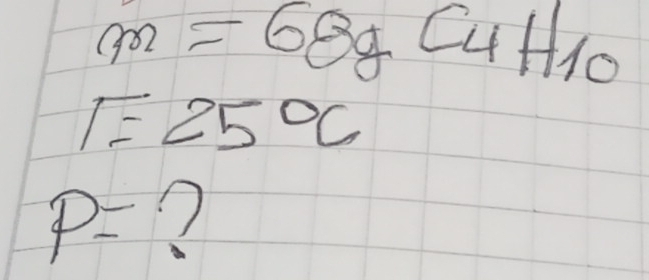 m = 68g C4H10
T= 25°C
P= ?